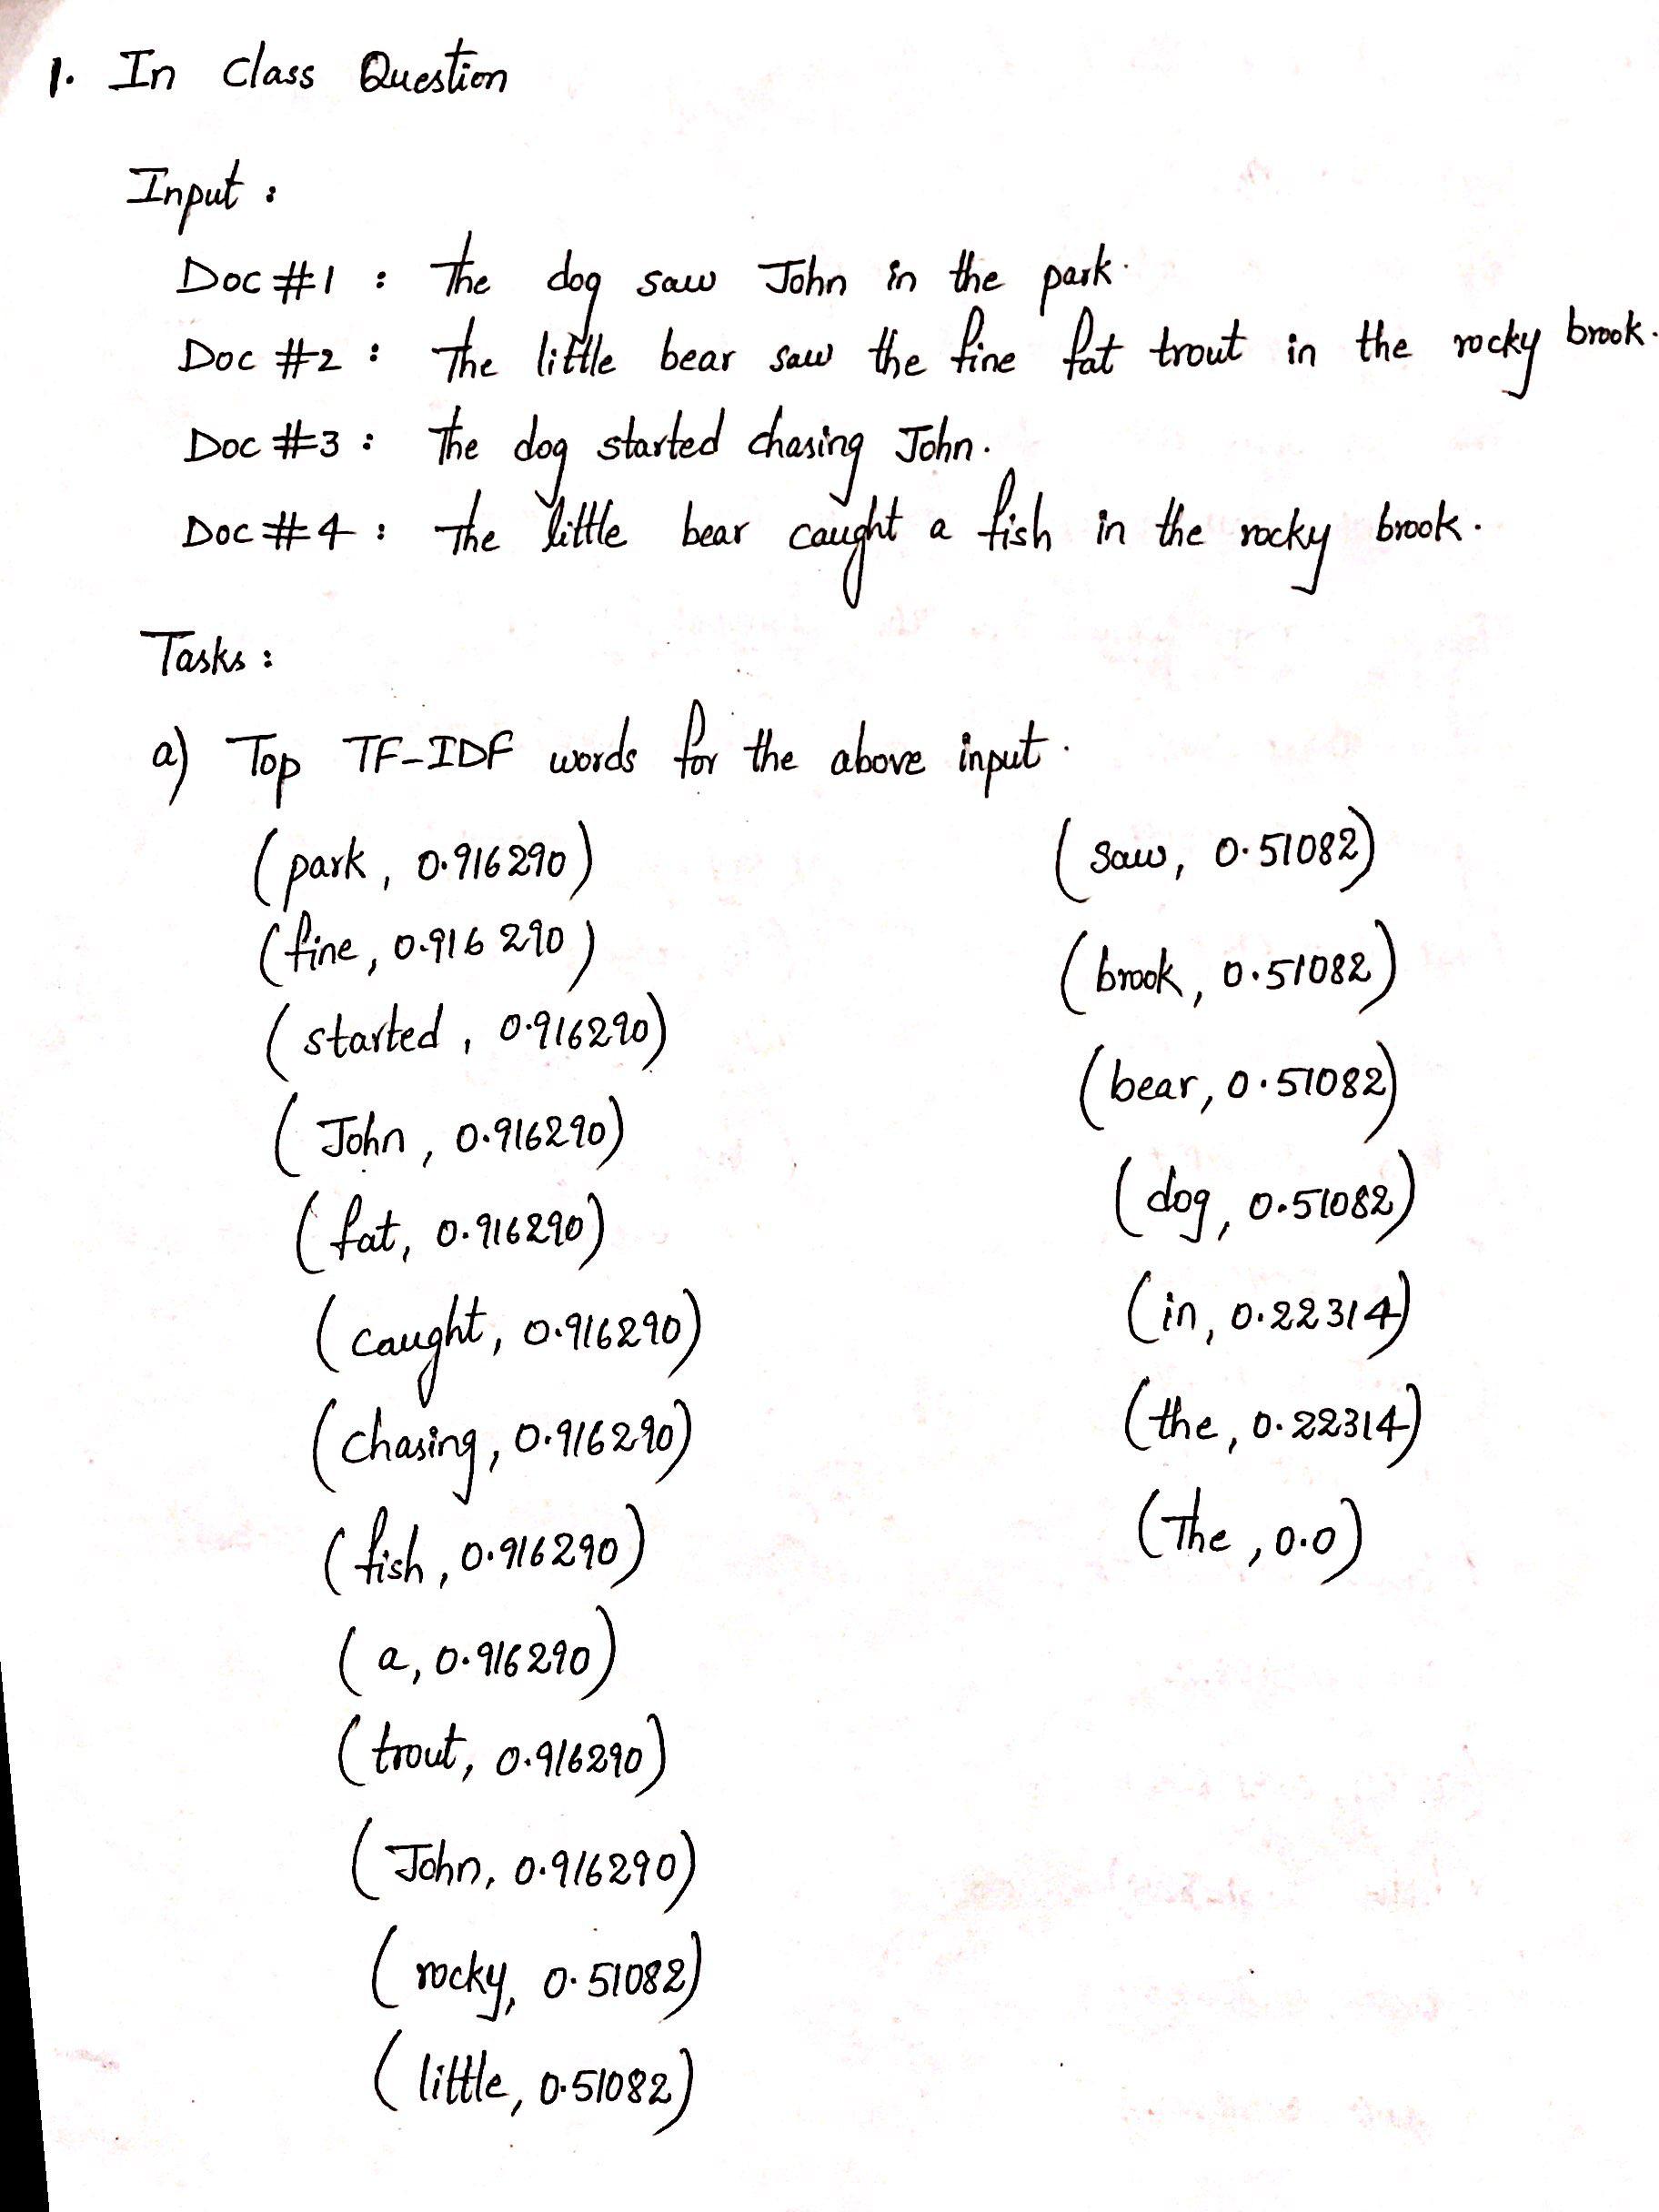 1. In Class Question
Input :
Doc #1 : The dog saw John in the park.
Doc #2 : The little bear saw the fine fat trout in the rocky brook.
Doc #3 : The dog started chasing John.
Doc #4 : The little bear caught a fish in the rocky brook.
Tasks :
a) Top TF-IDF words for the above input.
(park, 0.916290)
(fine, 0.916290)
(started, 0.916290)
(John, 0.916290)
(fat, 0.916290)
(caught, 0.916290)
(chasing, 0.916290)
(fish, 0.916290)
(a, 0.916290)
(trout, 0.916290)
(John, 0.916290)
(rocky, 0.51082)
(little, 0.51082)
(saw, 0.51082)
(brook, 0.51082)
(bear, 0.51082)
(dog, 0.51082)
(in, 0.22314)
(the, 0.22314)
(The, 0.0)